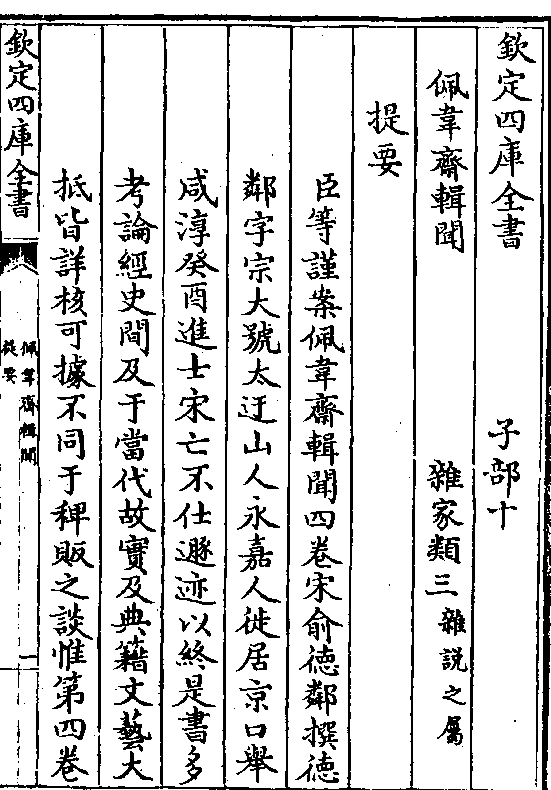 欽定四庫全書　子部十
佩韋齋輯聞　雜家類三雜說之屬
提要
臣等謹案佩韋齋輯聞四卷宋俞德鄰撰德
鄰字宗大號太迂山人永嘉人徙居京口舉
咸淳癸酉進士宋亡不仕遯迹以終是書多
考論經史間及于當代故實及典籍文藝大
抵皆詳核可據不同于稗販之談惟第四卷
欽定四庫全書
佩韋齋輯聞
提要
一